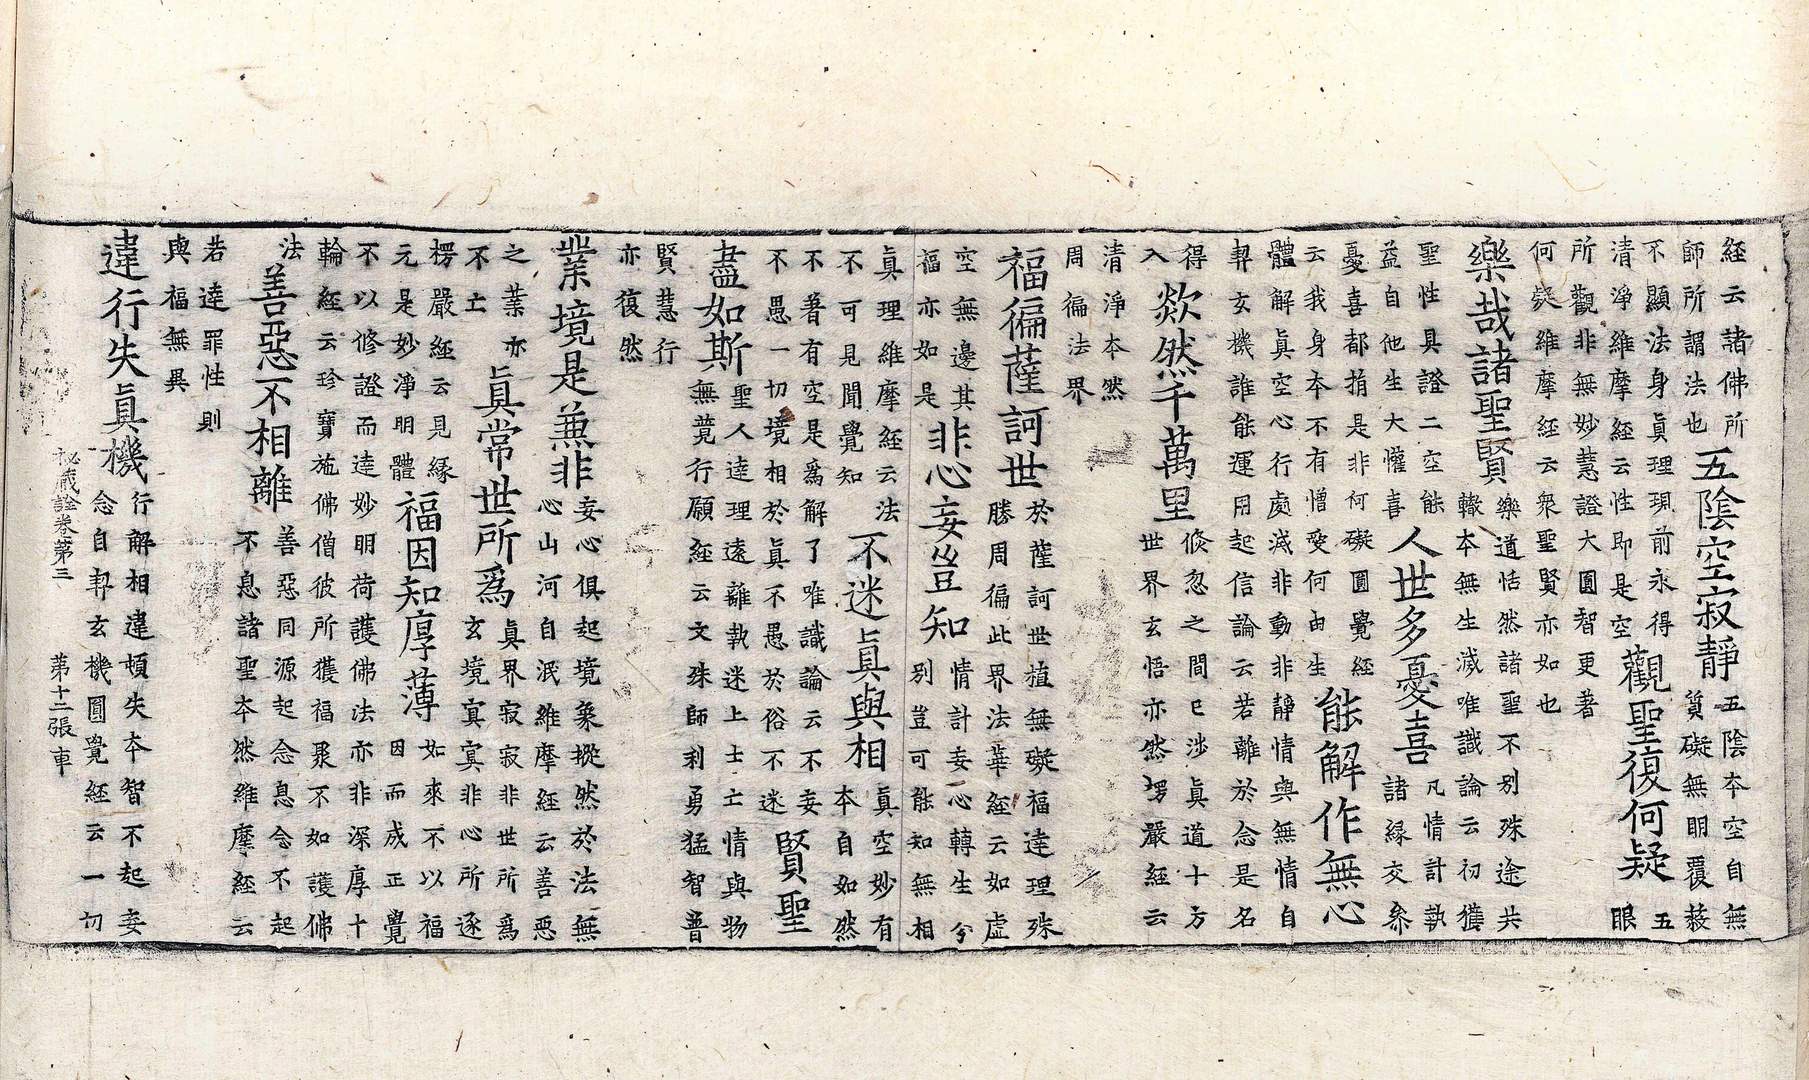 經云諸佛所
師所謂法也
五陰空寂靜
五陰本空自無
質礙無明覆蔽
不顯法身眞理現前永得
清淨維摩經云性即是空
觀聖復何疑
五
眼
所觀非無妙慧證大圓智更著
何疑維摩經云衆聖賢亦如也
樂哉諸聖賢
樂道恬然諸聖不別殊途共
轍本無生滅唯識論云初獲
聖性具證二空能
益自他生大懽喜
人世多憂喜
凡情計執
諸緣交參
憂喜都捐是非何礙圓覺經
云我身本不有憎愛何由生
能解作無心
體解眞空心行處滅非動非靜情與無情自
契玄機誰能運用起信論云若離於念是名
得
入
欻然千萬里
倐忽之間已涉眞道十方
世界玄悟亦然塄嚴經云
清淨本然
周徧法界
福徧薩訶世
於薩訶世植無礙福達理殊
勝周徧此界法華經云如虛
空無邊其
福亦如是
非心妄豈知
情計妄心轉生分
別豈可能知無相
眞理維摩經云法
不可見聞覺知
不迷眞與相
眞空妙有
本自如然
不著有空是爲解了唯識論云不妄
不愚一切境相於眞不愚於俗不迷
賢聖
盡如斯
聖人達理遠離執迷上士士情與物
無競行願經云文殊師利勇猛智普
賢慧行
亦復然
業境是兼非
妄心俱起境象摐然於法無
心山河自泯維摩經云善惡
之業亦
不亡
眞常世所爲
眞界寂寂非世所爲
玄境寞寞非心所逐
楞嚴經云見緣
元是妙淨明體
福因知厚薄
如來不以福
因而成正覺
不以修證而達妙明荷護佛法亦非深厚十
輪經云珍寶施佛僧彼所獲福聚不如護佛
法
善惡不相離
善惡同源起念息念不起
不息諸聖本然維摩經云
若達罪性則
與福無異
違行失眞機
行解相違頓失本智不起妄
念自契玄機圓覺經云一切
秘藏詮卷第三 第十二張 車